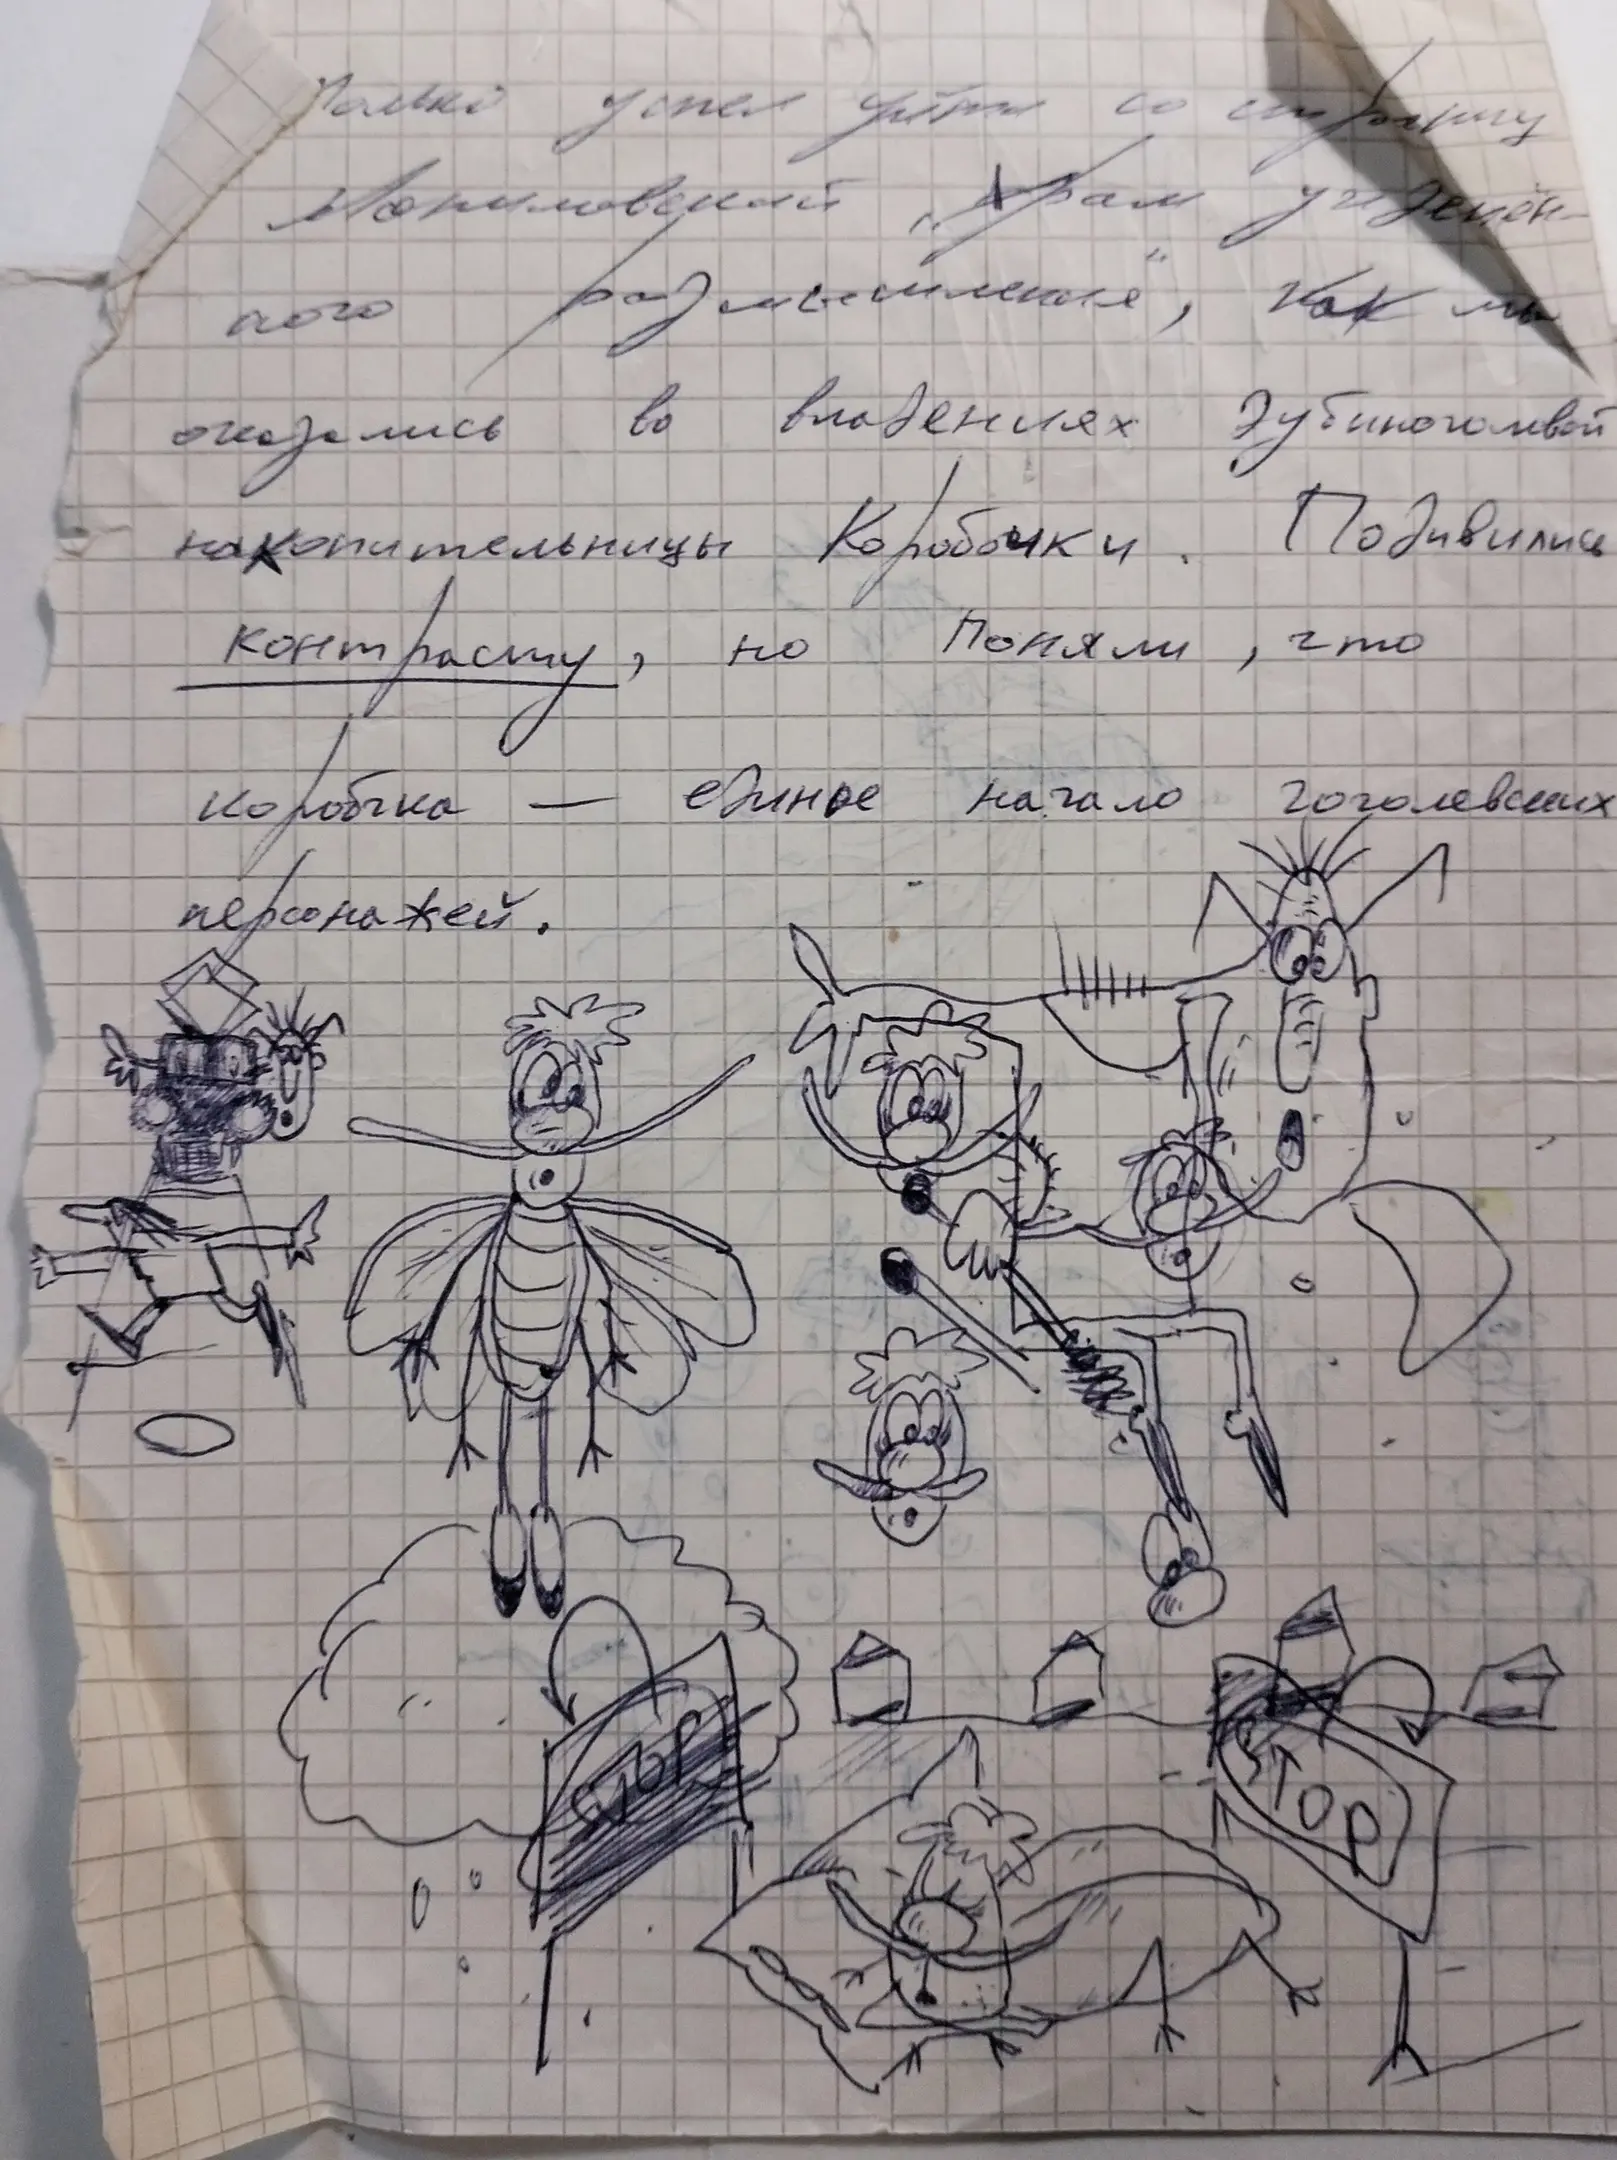 Только успел уйти со страниц
Маниловский „Храм уединён-
ного размышления“, как мы
оказались во владениях дубиноголовой
накопительницы Коробочки. Подивились
контрасту, но поняли, что
коробчка — единое начало гоголевских
персонажей.
STOP